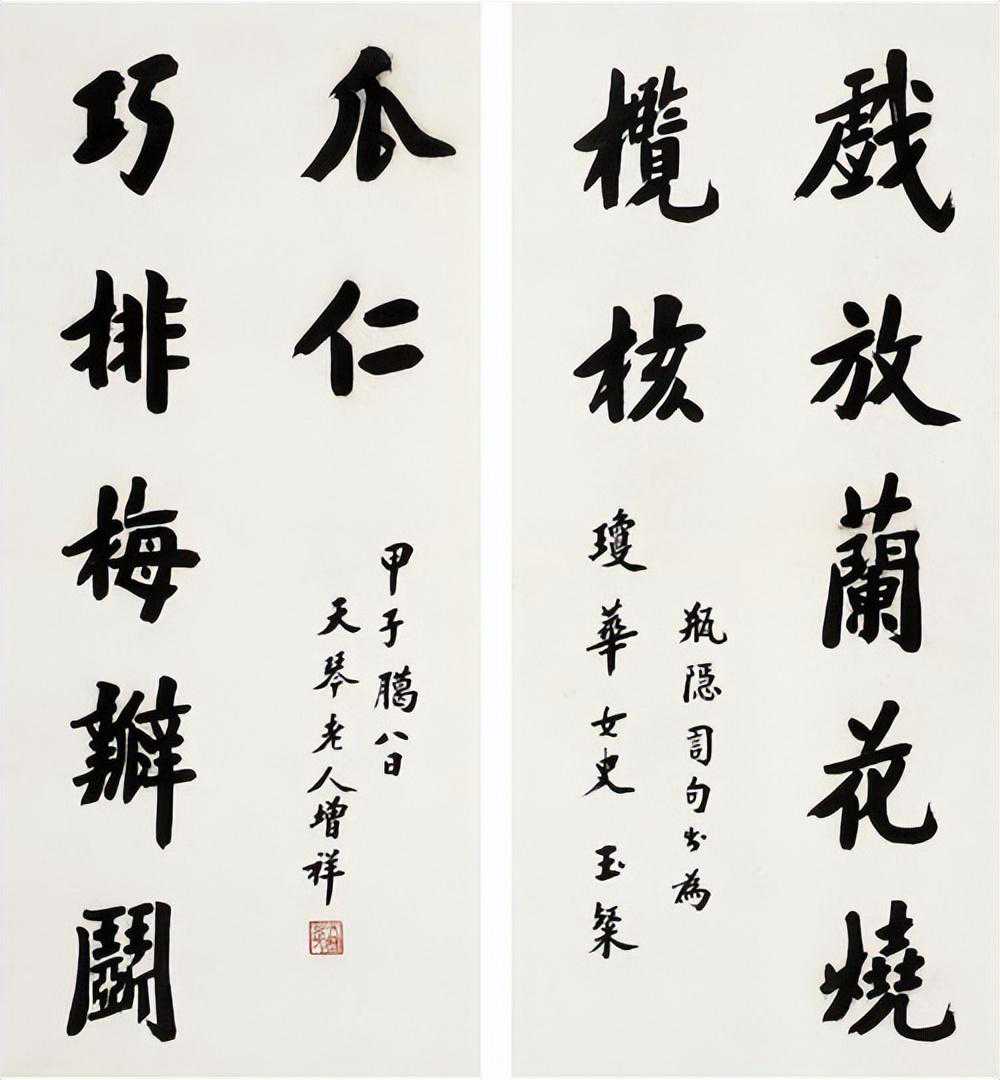 戲放蘭花燒
欖核
瓶隱詞句書為
瓊華女史 玉粲
巧排梅瓣鬭
瓜仁
甲子臈八日
天琴老人增祥